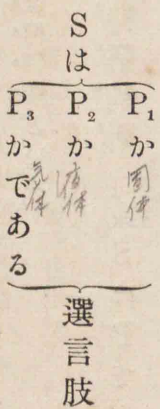 Sは
P₁か
固体
P₂か
液体
P₃かである
気体
選言肢